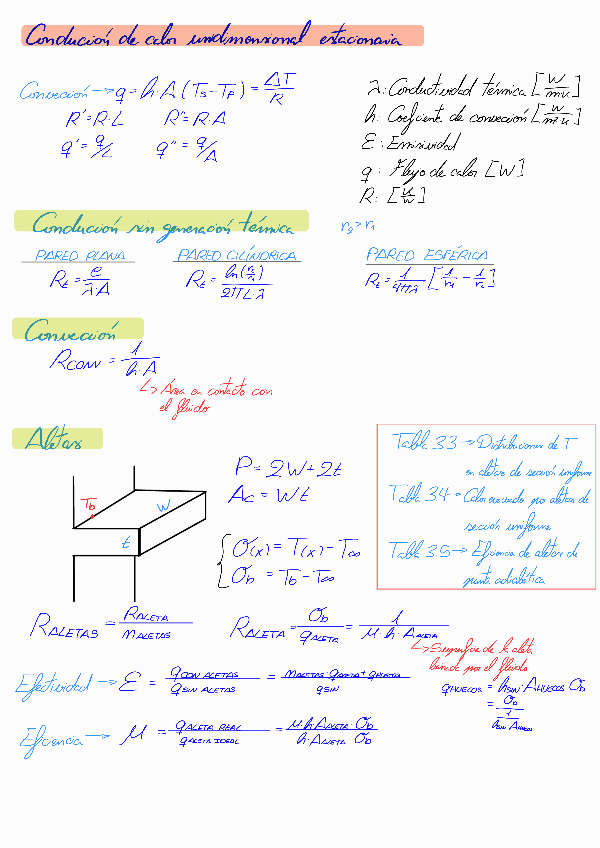 Conducción de calor unidimensional estacionaria
Convección → q = h·A (Ts - Tf) = ΔT/R
R' = R·L R'' = R·A
q' = q/L q'' = q/A
λ: Conductividad térmica [W/m·K]
h: Coeficiente de convección [W/m²·K]
ε: Emisividad
q: Flujo de calor [W]
R: [K/W]
Conducción sin generación térmica r₂ > r₁
PARED PLANA PARED CILÍNDRICA PARED ESFÉRICA
Rt = e/λ·A Rt = ln(r₂/r₁)/2πL·λ Rt = 1/4πλ [1/r₁ - 1/r₂]
Convección
Rconv = 1/h·A
↳ Área en contacto con
el fluido
Aletas
Tb W t
P = 2W + 2t
Ac = Wt
{ θ(x) = T(x) - T∞
θb = Tb - T∞
Tabla 3.3 → Distribuciones de T
en aletas de sección uniforme
Tabla 3.4 → Calor evacuado por aletas de
sección uniforme
Tabla 3.5 → Eficiencia de aletas de
punta adiabática
RALETAS = RALETA/nALETAS RALETA = θb/qALETA = 1/μ·h·AALETA
↳ Superficie de la aleta
bañada por el fluido
Efectividad → ε = qCON ALETAS/qSIN ALETAS = nALETAS·qALETA + qHUECOS/qSIN
qHUECOS = hSIN·AHUECOS θb
= θb/(1/hSIN·AHUECOS)
Eficiencia → μ = qALETA REAL/qALETA IDEAL = μ·h·AALETA·θb/h·AALETA θb